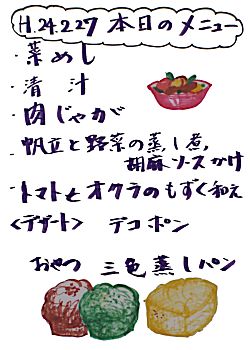 H.24.2.27 本日のメニュー
・菜めし
・清汁
・肉じゃが
・帆立と野菜の蒸し煮,
胡麻ソースかけ
・トマトとオクラのもずく和え
<デザート> デコポン
おやつ 三色蒸しパン